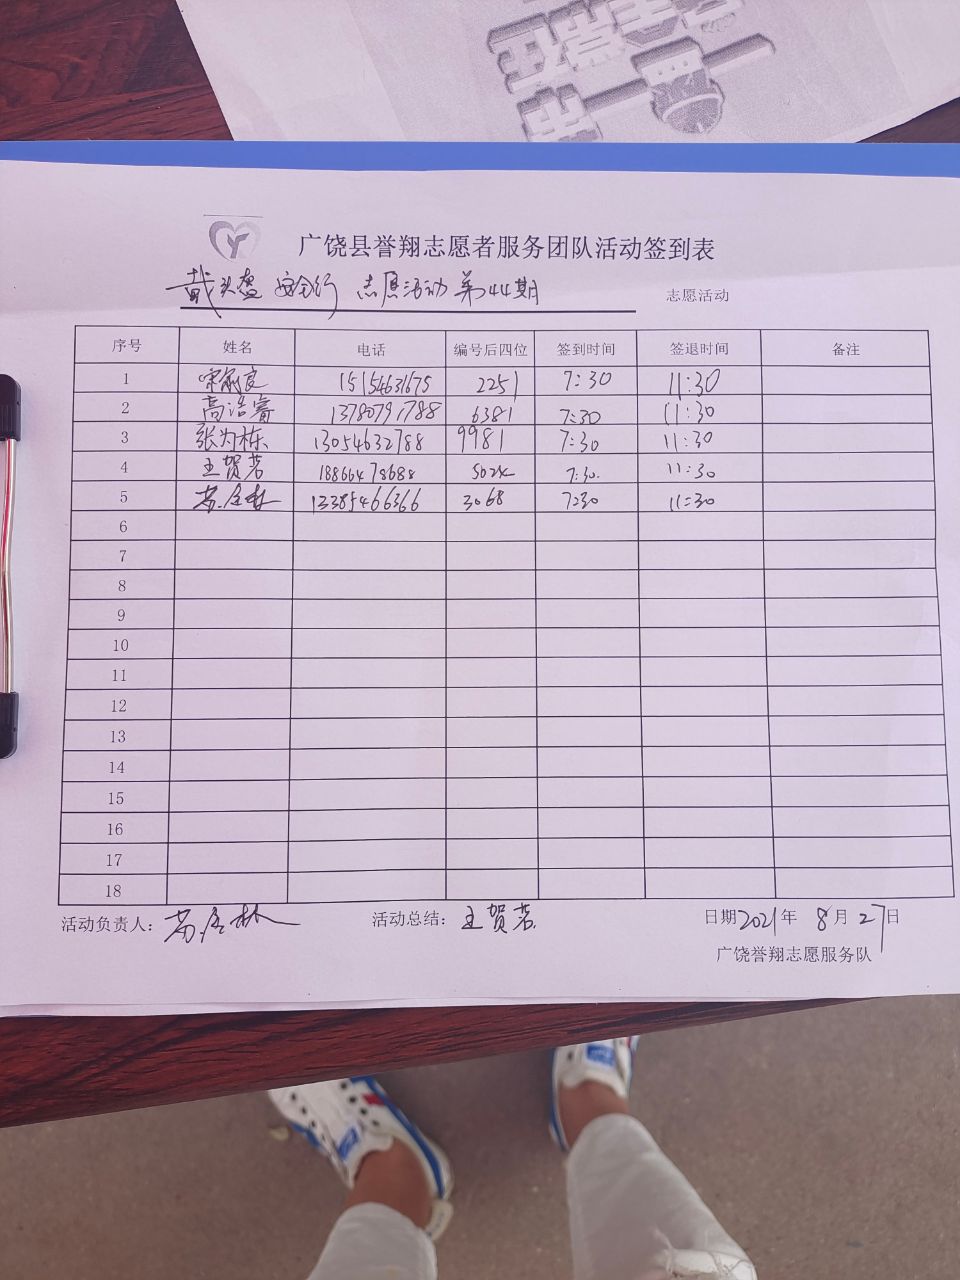 广饶县誉翔志愿者服务团队活动签到表
戴头盔 安全行 志愿活动 第44期 志愿活动
序号 姓名 电话 编号后四位 签到时间 签退时间 备注
1 15154631675 2251 7:30 11:30
2 高浩睿 13780791788 6381 7:30 11:30
3 张为栋 13054632788 9981 7:30 11:30
4 王贺茗 18866478688 7:30 11:30
5 13385466366 3068 7:30 11:30
6
7
8
9
10
11
12
13
14
15
16
17
18
活动负责人: 活动总结: 王贺茗 日期2021年 8月27日
广饶誉翔志愿服务队